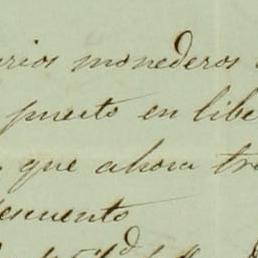 rios monederos
puesto en libe
que ahora tr
descuento